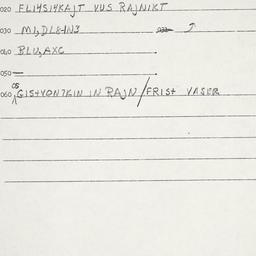 020 FL14S14KAJT VUS RAJNIKT
030 M1,DL8-1N3
040 BLU,AXC
050 —
060 GIS+VON7KIN IN RAJN/FRIS+ VASER